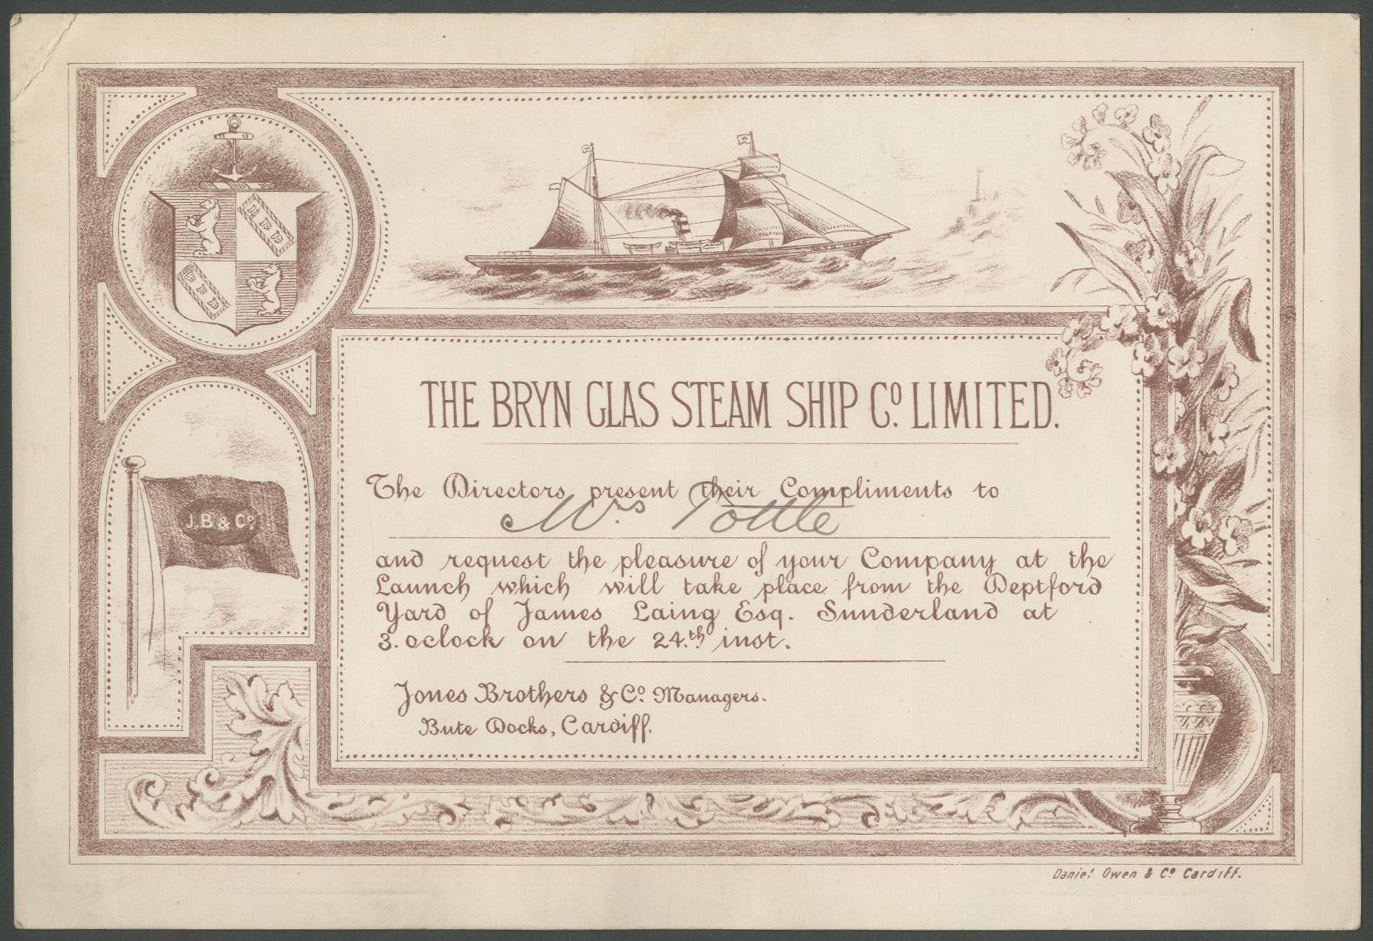 J.B & Co.
THE BRYN GLAS STEAM SHIP Co. LIMITED.
The Directors present their Compliments to
Mrs Pottle
and request the pleasure of your Company at the
Launch which will take place from the Deptford
Yard of James Laing Esq. Sunderland at
3. oclock on the 24.th inst.
Jones Brothers & Co. Managers.
Bute Docks, Cardiff.
Daniel Owen & Co. Cardiff.